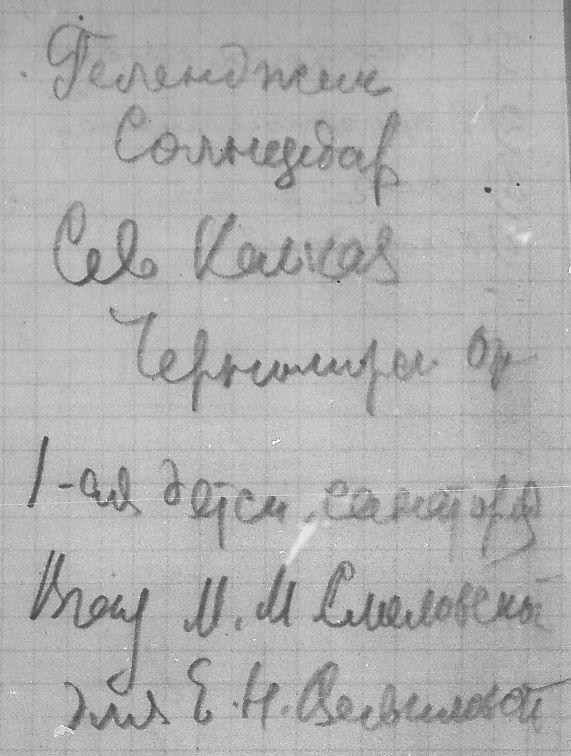 Геленджик
Солнцедар
Сев Кавказ
Черноморск. Ок
1-ая детск. санатор
Врачу М. М Смеловской
для Е. Н.